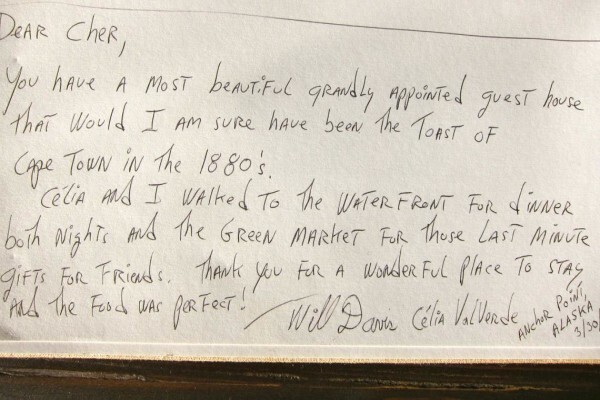 Dear Cher,
You have a most beautiful grandly appointed guest house
that would I am sure have been the toast of
Cape Town in the 1880's.
Célia and I walked to the waterfront for dinner
both nights and the Green Market for those last minute
gifts for friends. Thank you for a wonderful place to stay
and the food was perfect!
Will Davis Célia Valverde
Anchor Point,
Alaska
3/30/